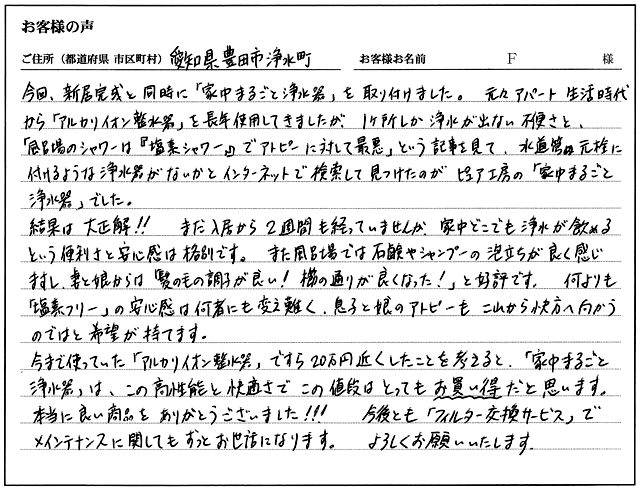 お客様の声
ご住所（都道府県 市区町村） 愛知県豊田市浄水町 お客様お名前 F 様
今回、新居完成と同時に「家中まるごと浄水器」を取り付けました。 元々アパート生活時代
から「アルカリイオン整水器」を長年使用してきましたが、1ヶ所しか浄水が出ない不便さと、
「風呂場のシャワーは『塩素シャワー』でアトピーに対して最悪」という記事を見て、水道管の元栓に
付けるような浄水器がないかとインターネットで検索して見つけたのがピュア工房の「家中まるごと
浄水器」でした。
結果は大正解!! まだ入居から2週間も経っていませんが、家中どこでも浄水が飲める
という便利さと安心感は格別です。 また風呂場では石鹸やシャンプーの泡立ちが良く感じ
ますし、妻と娘からは「髪の毛の調子が良い! 櫛の通りが良くなった!」と好評です。 何よりも
「塩素フリー」の安心感は何者にも変え難く、息子と娘のアトピーもこれから快方へ向かう
のではと希望が持てます。
今まで使っていた「アルカリイオン整水器」ですら20万円近くしたことを考えると、「家中まるごと
浄水器」は、この高性能と快適さでこの値段はとってもお買い得だと思います。
本当に良い商品をありがとうございました!!! 今後とも「フィルター交換サービス」で
メインテナンスに関してもずっとお世話になります。 よろしくお願いいたします。